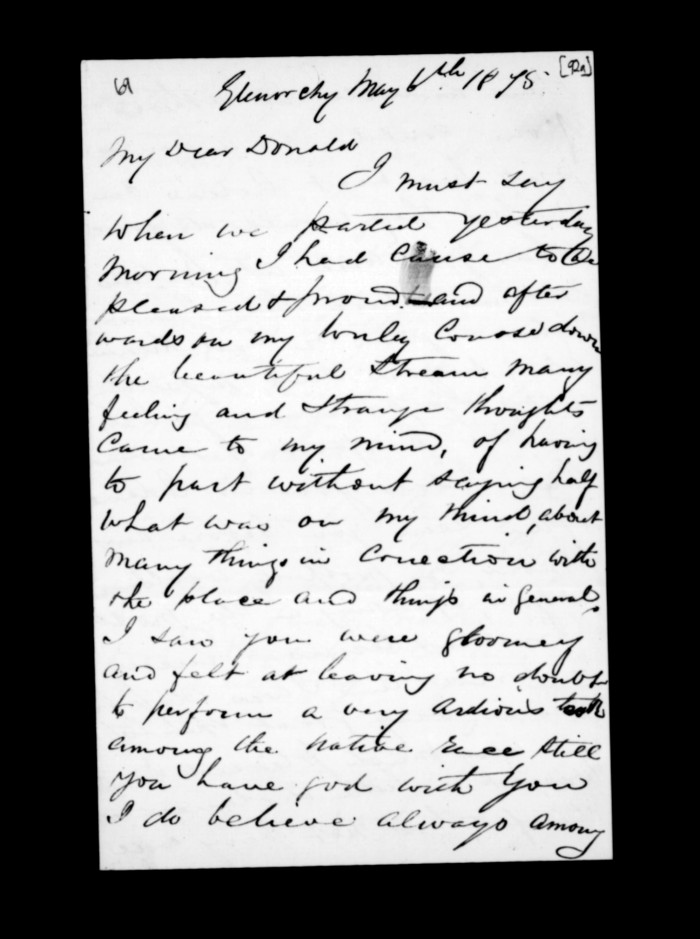 69
[92a]
Glenorchy May 6th 1875.
My Dear Donald
I must say
When we parted yesterday
Morning I had Cause to be
pleased & proud and after
wards on my lonley Course down
the beautiful Stream Many
feeling and Strange thoughts
Came to my mind, of having
to part without saying half
what was on my Mind, about
Many things in Conection with
the place and things in General.
I saw you were gloomey
and felt at leaving no doubt
to perform a very Ardious task
among the native Race Still
you have god with You
I do believe always Among